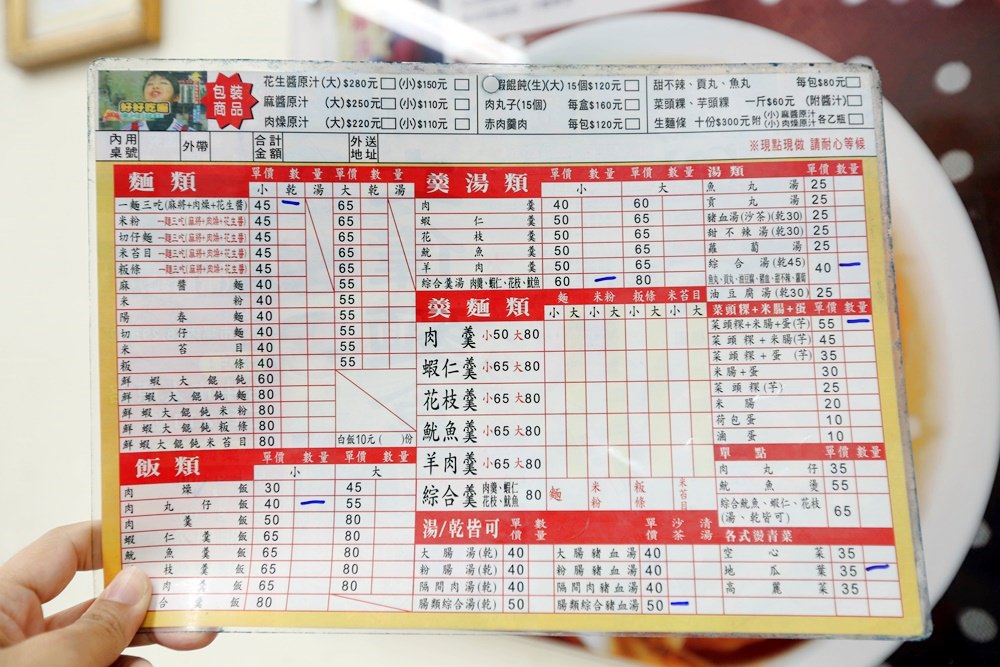 好好吃喔
包裝
商品
花生醬原汁(大)$280元 (小)$150元
麻醬原汁 (大)$250元 (小)$110元
肉燥原汁 (大)$220元 (小)$110元
蝦餛飩(生)(大)15個$120元
肉丸子(15個) 每盒$160元
赤肉羹肉 每包$120元
甜不辣、貢丸、魚丸 每包$80元
菜頭粿、芋頭粿 一斤$60元 (附醬汁)
生麵條 十份$300元附(小)麻醬原汁(小)肉燥原汁各乙瓶
內用
桌號
外帶
合計
金額
外送
地址
※現點現做 請耐心等候
麵類 單價 數量 單價 數量
小 乾 湯 大 乾 湯
一麵三吃(麻將+肉燥+花生醬) 45 65
米粉 一麵三吃(麻將+肉燥+花生醬) 45 65
切仔麵 一麵三吃(麻將+肉燥+花生醬) 45 65
米苔目 一麵三吃(麻將+肉燥+花生醬) 45 65
粄條 一麵三吃(麻將+肉燥+花生醬) 45 65
麻醬麵 40 55
米粉 40 55
陽春麵 40 55
切仔麵 40 55
米苔目 40 55
粄條 40 55
鮮蝦大餛飩 60
鮮蝦大餛飩麵 80
鮮蝦大餛飩米粉 80
鮮蝦大餛飩粄條 80
鮮蝦大餛飩米苔目 80
白飯10元( )份
飯類 單價 數量 單價 數量
小 大
肉燥飯 30 45
肉丸仔飯 40 55
肉羹飯 50 80
蝦仁羹飯 65 80
魷魚羹飯 65 80
枝羹飯 65 80
肉羹飯 65 80
合羹飯 80
羹湯類 單價 數量 單價 數量
小 大
肉羹 40 60
蝦仁羹 50 65
花枝羹 50 65
魷魚羹 50 65
羊肉羹 50 65
綜合羹湯 肉羹、蝦仁、花枝、魷魚 60 80
羹麵類 麵 米粉 粄條 米苔目
小 大 小 大 小 大 小 大
肉羹 小50 大80
蝦仁羹 小65 大80
花枝羹 小65 大80
魷魚羹 小65 大80
羊肉羹 小65 大80
綜合羹 肉羹、蝦仁花枝、魷魚 80 麵 米粉 粄條 米苔目
湯/乾皆可 單價 數量 單價 沙茶 清湯
大腸湯(乾) 40 大腸豬血湯 40
粉腸湯(乾) 40 粉腸豬血湯 40
隔間肉湯(乾) 40 隔間肉豬血湯 40
腸類綜合湯(乾) 50 腸類綜合豬血湯 50
湯類 單價 數量
魚丸湯 25
貢丸湯 25
豬血湯(沙茶)(乾30) 25
甜不辣湯(乾30) 25
蘿蔔湯 25
綜合湯(乾45) 40
魚丸、貢丸、油豆腐、豬血、甜不辣、蘿蔔
油豆腐湯(乾30) 25
菜頭粿+米腸+蛋 單價 數量
菜頭粿+米腸+蛋(芋) 55
菜頭粿+米腸(芋) 45
菜頭粿+蛋(芋) 35
米腸+蛋 30
菜頭粿(芋) 25
米腸 20
荷包蛋 10
滷蛋 10
單點 單價 數量
肉丸仔 35
魷魚燙 55
綜合魷魚、蝦仁、花枝
(湯、乾皆可) 65
各式燙青菜 單價 數量
空心菜 35
地瓜葉 35
高麗菜 35